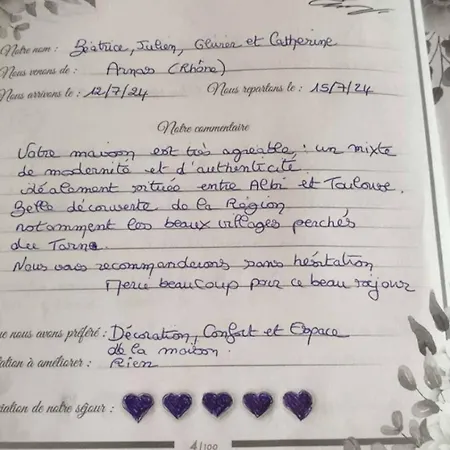 Notre nom : Béatrice, Julien, Olivier et Catherine
Nous venons de : Arnas (Rhône)
Nous arrivons le : 12/7/24 Nous repartons le : 15/7/24
Notre commentaire
Votre maison est très agréable : un mixte
de modernité et d'authenticité.
idéalement située entre Albi et Toulouse.
Belle découverte de la Région
notamment les beaux villages perchés
du Tarn.
Nous vous recommanderons sans hésitation
Merci beaucoup pour ce beau séjour
que nous avons préféré : Décoration, Confort et Espace
de la maison.
à améliorer : Rien
de notre séjour :
4/100